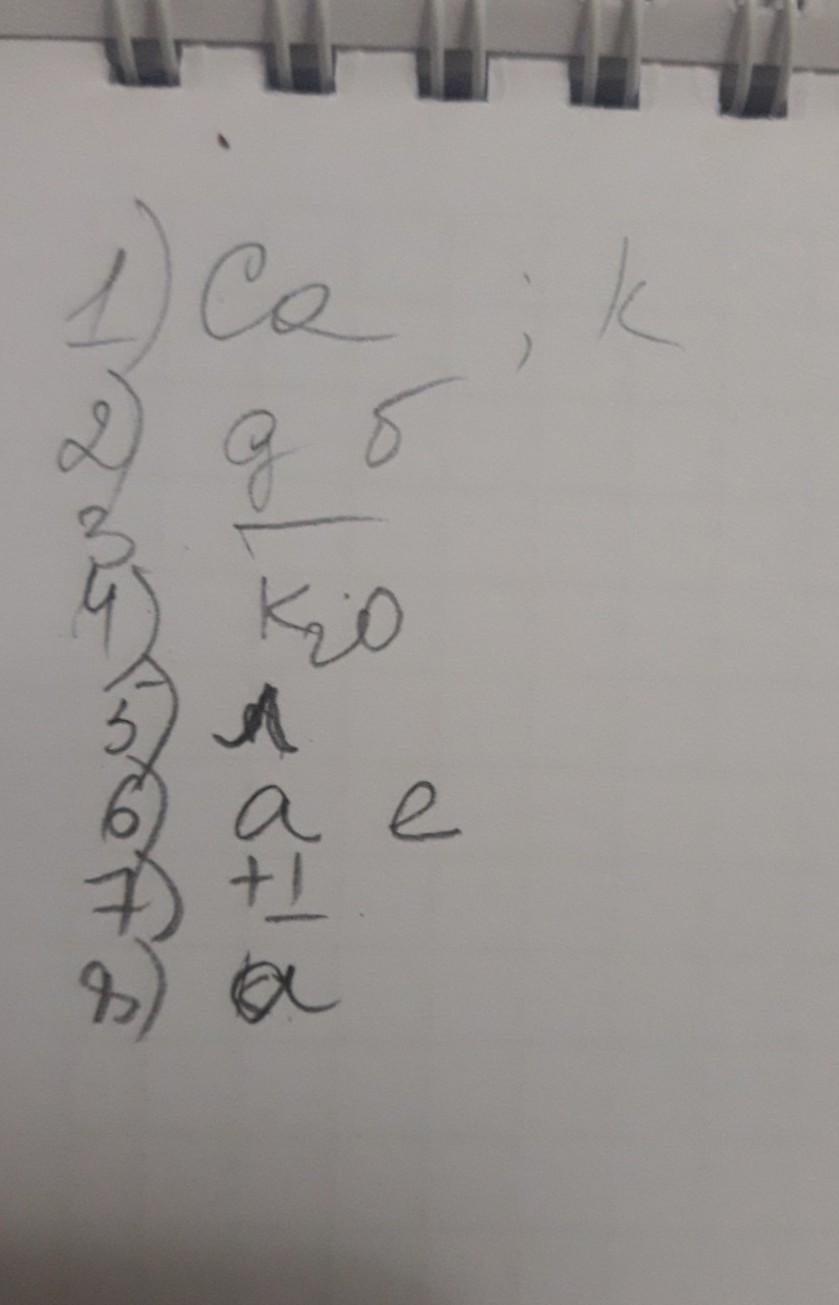 1) Ca ; K
2) д б
3 —
4) K₂O
5) л
6) а е
7) +1
8) а